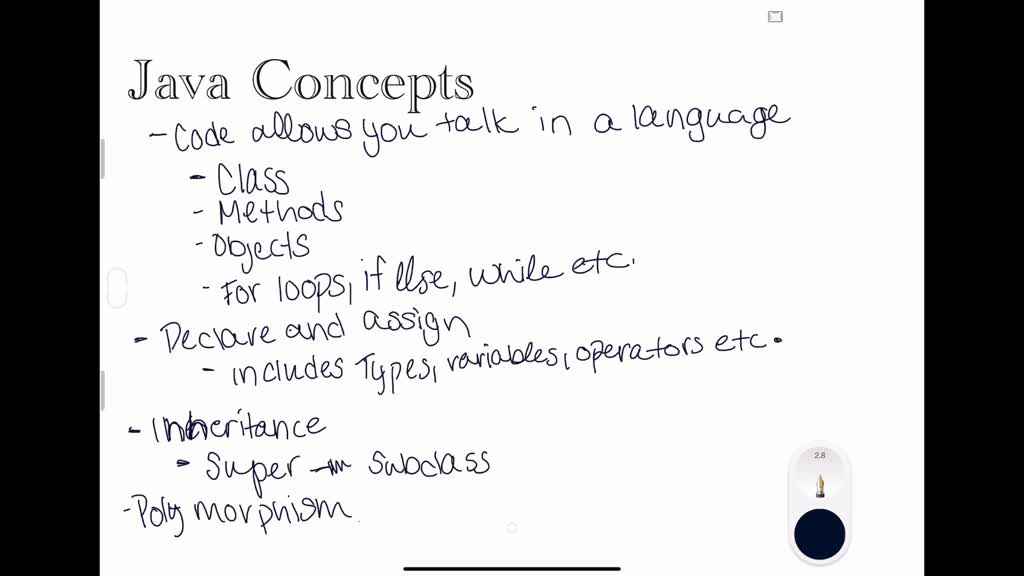 Java Concepts
- Code allows you talk in a language
- Class
- Methods
- Objects
- For loops, if else, while etc.
- Declare and assign
- includes Types, variables, operators etc.
- Inheritance
- Super - subclass
- Polymorphism.
2.8